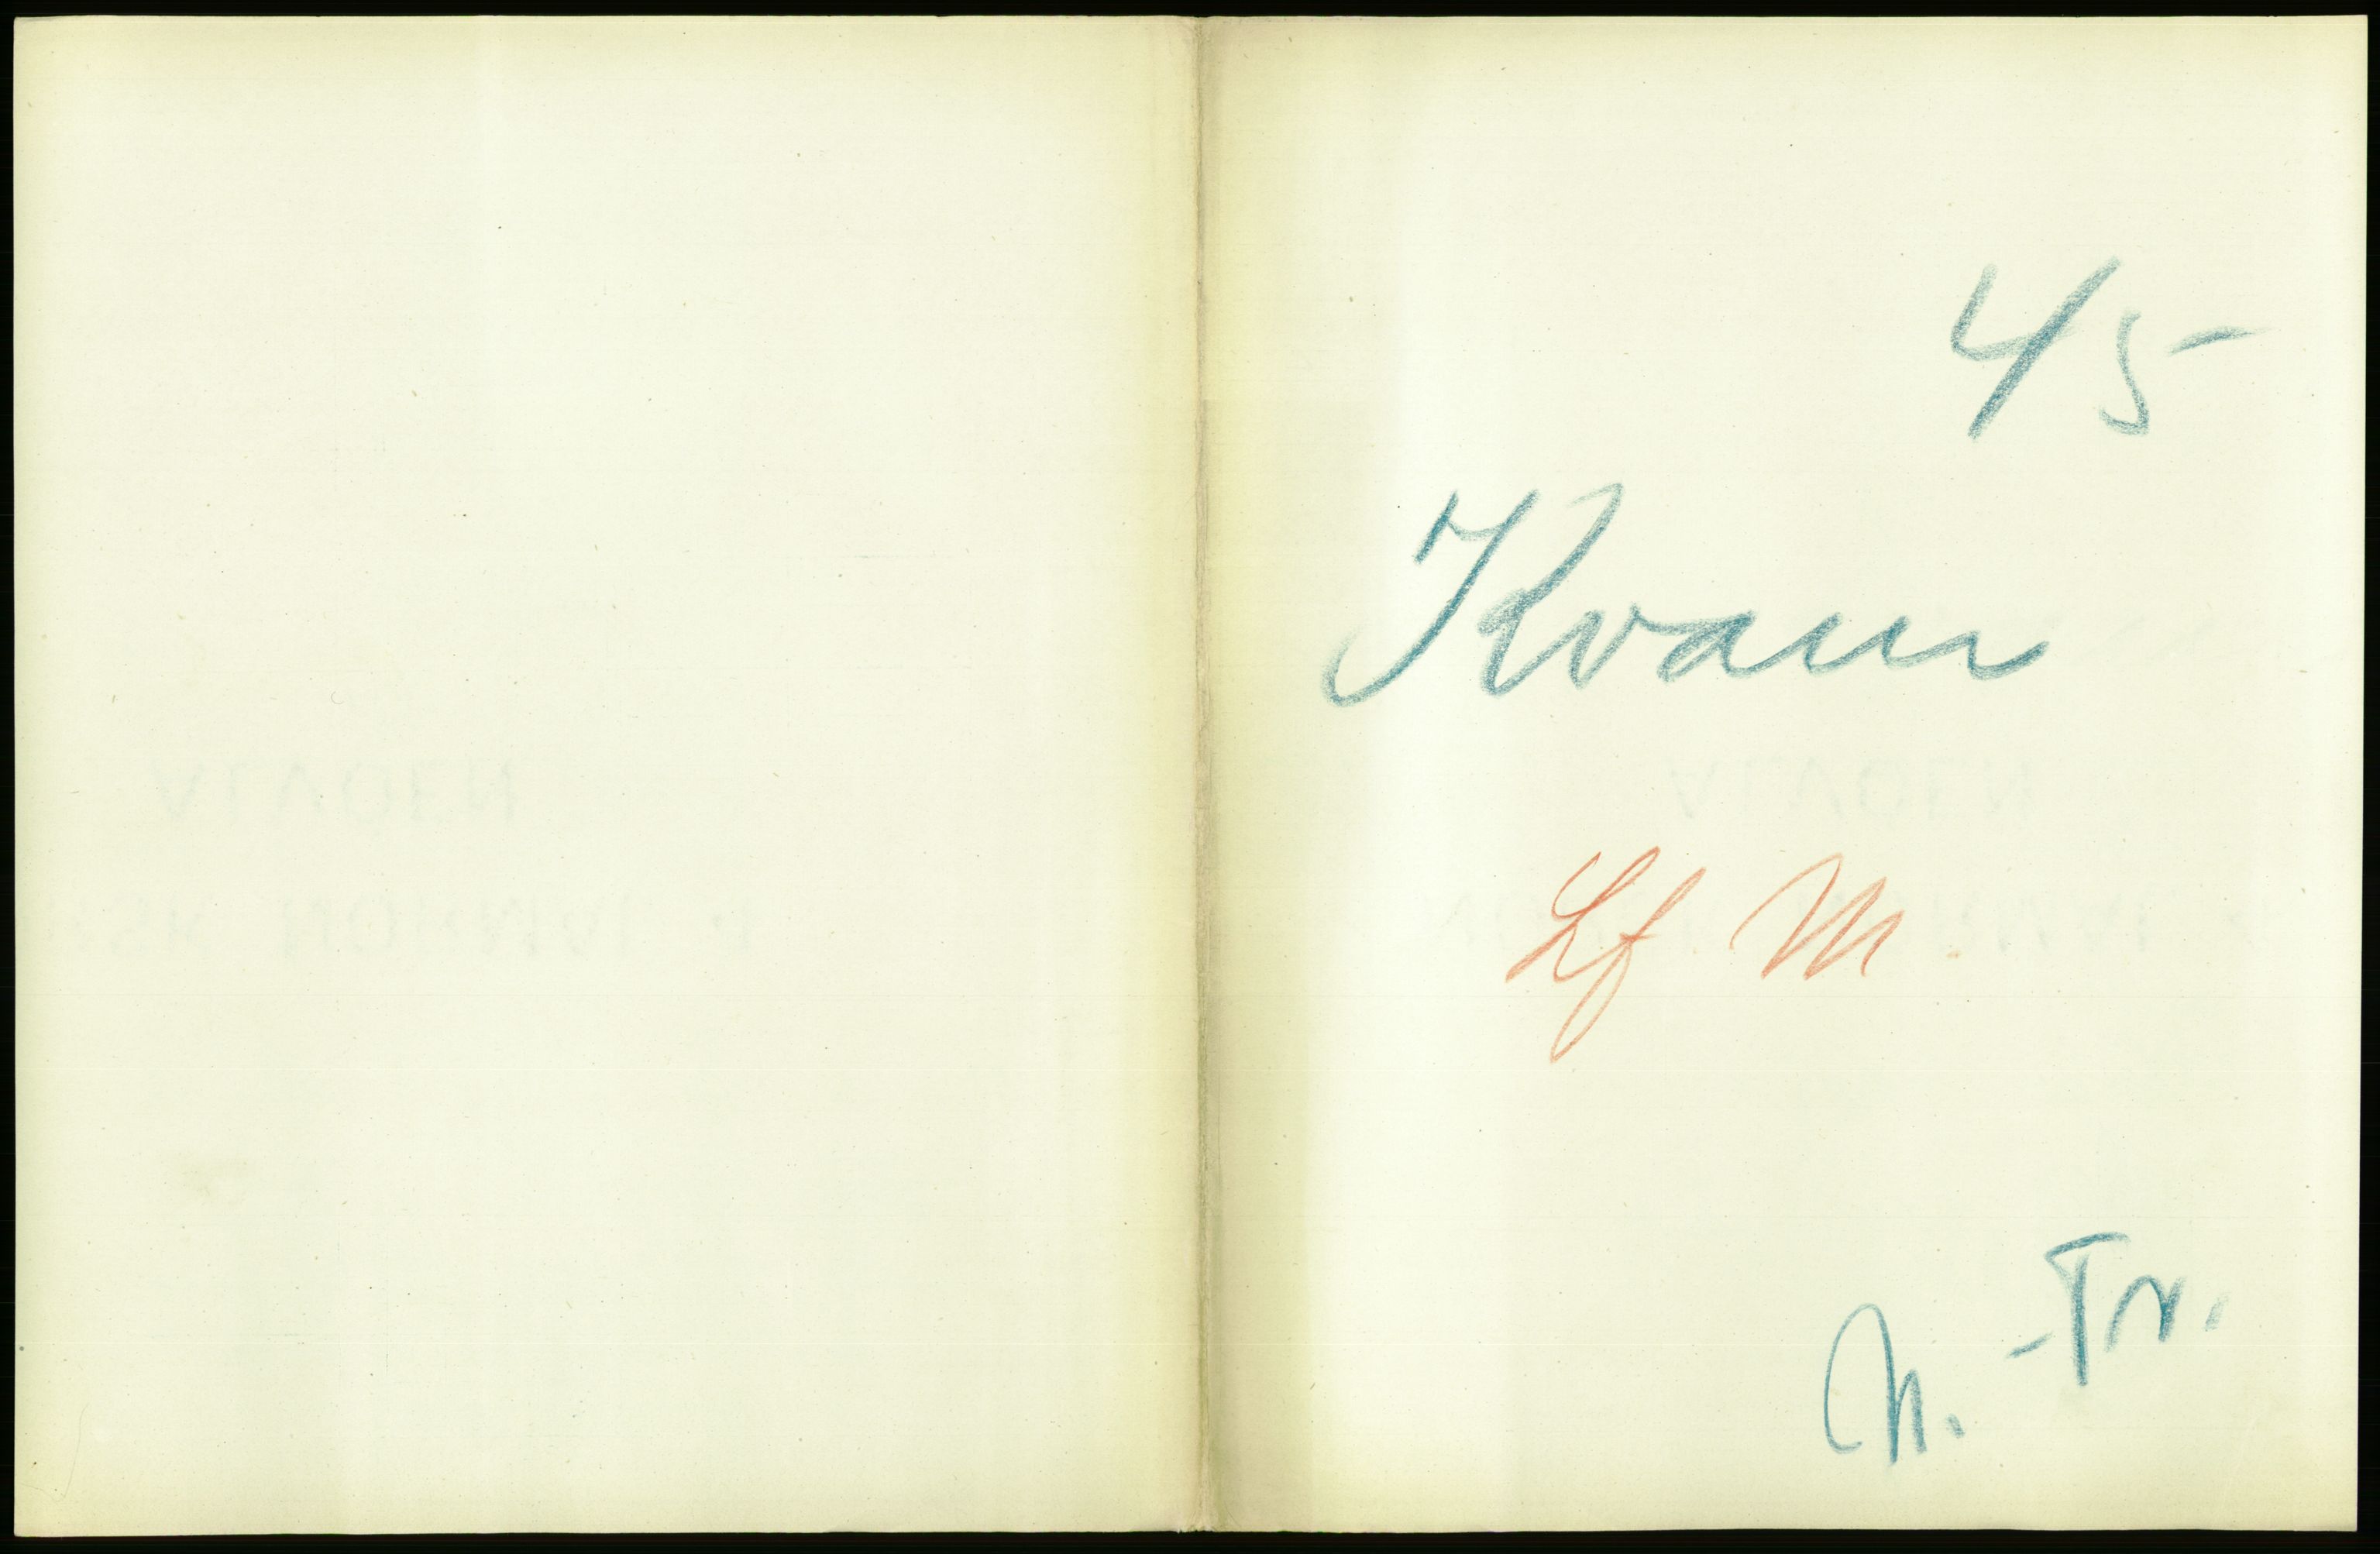 45
Kvam
Lf M.
N.-Tr.